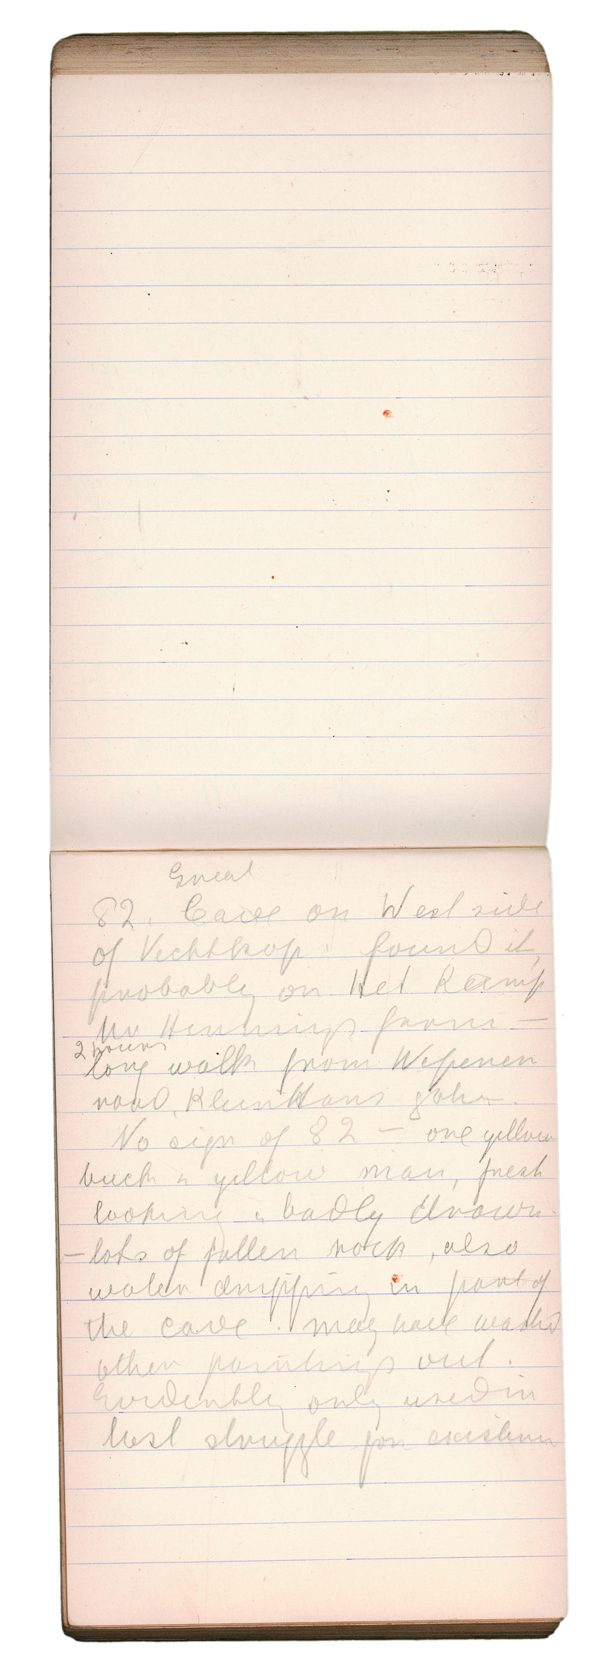 Great
82. Cave on West side
of Vechtkop. found it,
probably on Het Kamp
Mr Hennings farm —
2 hours
long walk from Wepener
road, Klein Hans
No sign of 82 — one yellow
buck & yellow man, fresh
looking & badly drawn.
— lots of fallen rock, also
water dripping in part of
the cave. may have washed
other paintings out.
Evidently only used in
last struggle for existence